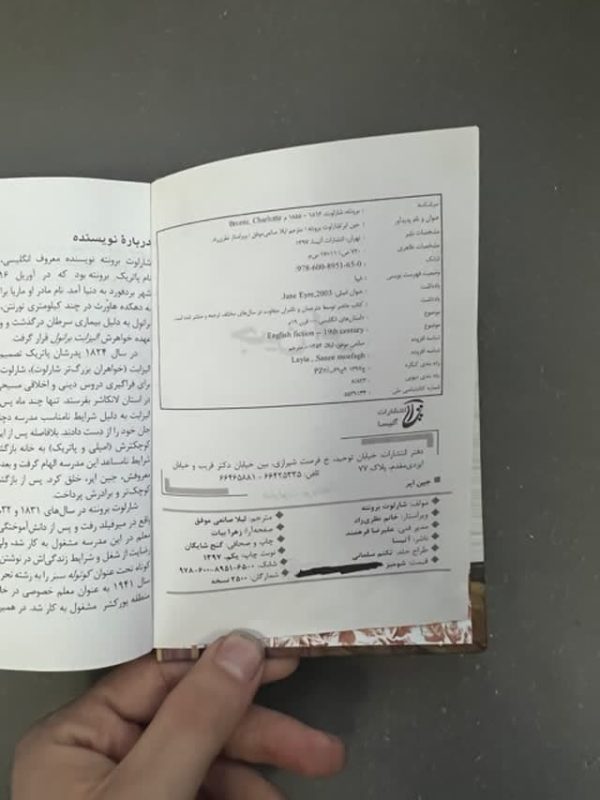 سرشناسه : برونته، شارلوت، ۱۸۱۶ - ۱۸۵۵ م Bronte, Charlotte
عنوان و نام پدیدآور : جین ایر/شارلوت برونته ؛ مترجم لیلا صانعی‌موفق ؛ ویراستار نظری‌راد.
مشخصات نشر : تهران، انتشارات آتیسا، ۱۳۹۷.
مشخصات ظاهری : ۷۲۰ ص؛
شابک : 978-600-8951-65-0
وضعیت فهرست نویسی : فیپا
یادداشت : عنوان اصلی: Jane Eyre,2003.
یادداشت : کتاب حاضر توسط مترجمان و ناشران متفاوت در سال‌های مختلف ترجمه و منتشر شده است.
موضوع : داستان‌های انگلیسی -- قرن ۱۹م
موضوع : English fiction -- 19th century
شناسه افزوده : صانعی موفق، لیلا، مترجم
شناسه افزوده : Leyla, Sanee moefagh
رده بندی کنگره
رده بندی دیویی
شماره کتابشناسی ملی
انتشارات
آتیسا
دفتر انتشارات، خیابان توحید، خ فرصت شیرازی، بین خیابان دکتر قریب و خیابان
پلاک ۷۷ تلفن: ۶۶۴۲۵۳۳۵ - ۶۶۴۶۵۸۸۱
جین ایر
مؤلف: شارلوت برونته
مترجم: لیلا صانعی موفق
ویراستار: خانم نظری‌راد
صفحه‌آرا: زهرا بیات
مدیر فنی: علیرضا فرهمند
چاپ و صحافی: گنج شایگان
ناشر: آتیسا
نوبت چاپ: یکم، ۱۳۹۷
طراح جلد: تکتم سلمانی
شابک: ۶۵۰۰-۸۹۵۱-۶۰۰-۹۷۸
قیمت: شومیز
شمارگان: ۲۵۰۰ نسخه
دربارهٔ نویسنده
شارلوت برونته نویسنده معروف انگلیسی،
نام پاتریک برونته بود که در آوریل
شهر بردفورد به دنیا آمد. نام مادر او ماریا
به دهکده هاوُرث در چند کیلومتری تورنتن،
برانول به دلیل بیماری سرطان درگذشت و
عهده خواهرش الیزابت برانول قرار گرفت
در سال ۱۸۲۴ پدرشان پاتریک تصمیم
الیزابت (خواهران بزرگ‌تر شارلوت)، شارلوت
برای فراگیری دروس دینی و اخلاقی مسیحی
در استان لانکاشر بفرستد. تنها چند ماه پس
الیزابت به دلیل شرایط نامناسب مدرسه
جان خود را از دست دادند. بلافاصله پس از
کوچکترش (امیلی و پاتریک) به خانه
شرایط نامساعد این مدرسه الهام گرفت و بعد
معروفش، جین ایر، خلق کرد. پس از
کوچک‌تر و برادرش پرداخت.
شارلوت برونته در سال‌های ۱۸۳۱ و
واقع در میرفیلد رفت و پس از دانش‌آموختگی
معلم در این مدرسه مشغول به کار شد.
رضایت از شغل و شرایط زندگی‌اش در نوشتن
کوتاه تحت عنوان کوتوله سبز را به رشته
سال ۱۹۴۱ به عنوان معلم خصوصی در
منطقه یورکشر مشغول به کار شد. در